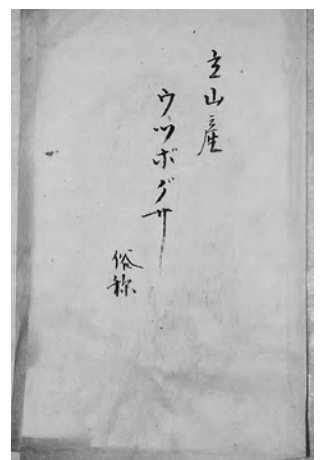 立山産
ウツボグサ
俗称